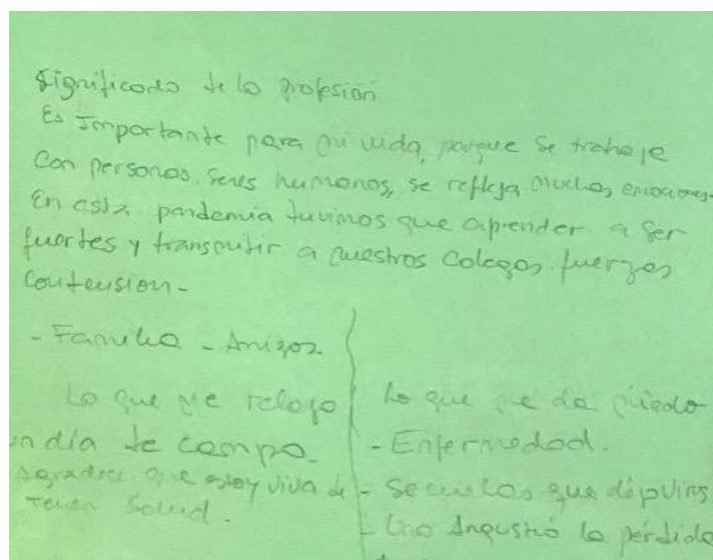 Significado de la profesión
Es Importante para mi vida, porque se trabaja
Con personas, seres humanos, se refleja muchas emociones.
En esta pandemia tuvimos que aprender a ser
fuertes y transmitir a nuestros Colegas fuerzas
Contension -
- Familia - Amigos
Lo que me relaja
un día de campo.
Agradece que estoy viva de
tener Salud.
Lo que me da miedo
- Enfermedad.
- Secuelas que dejo virus
- Una Angustia la pérdida